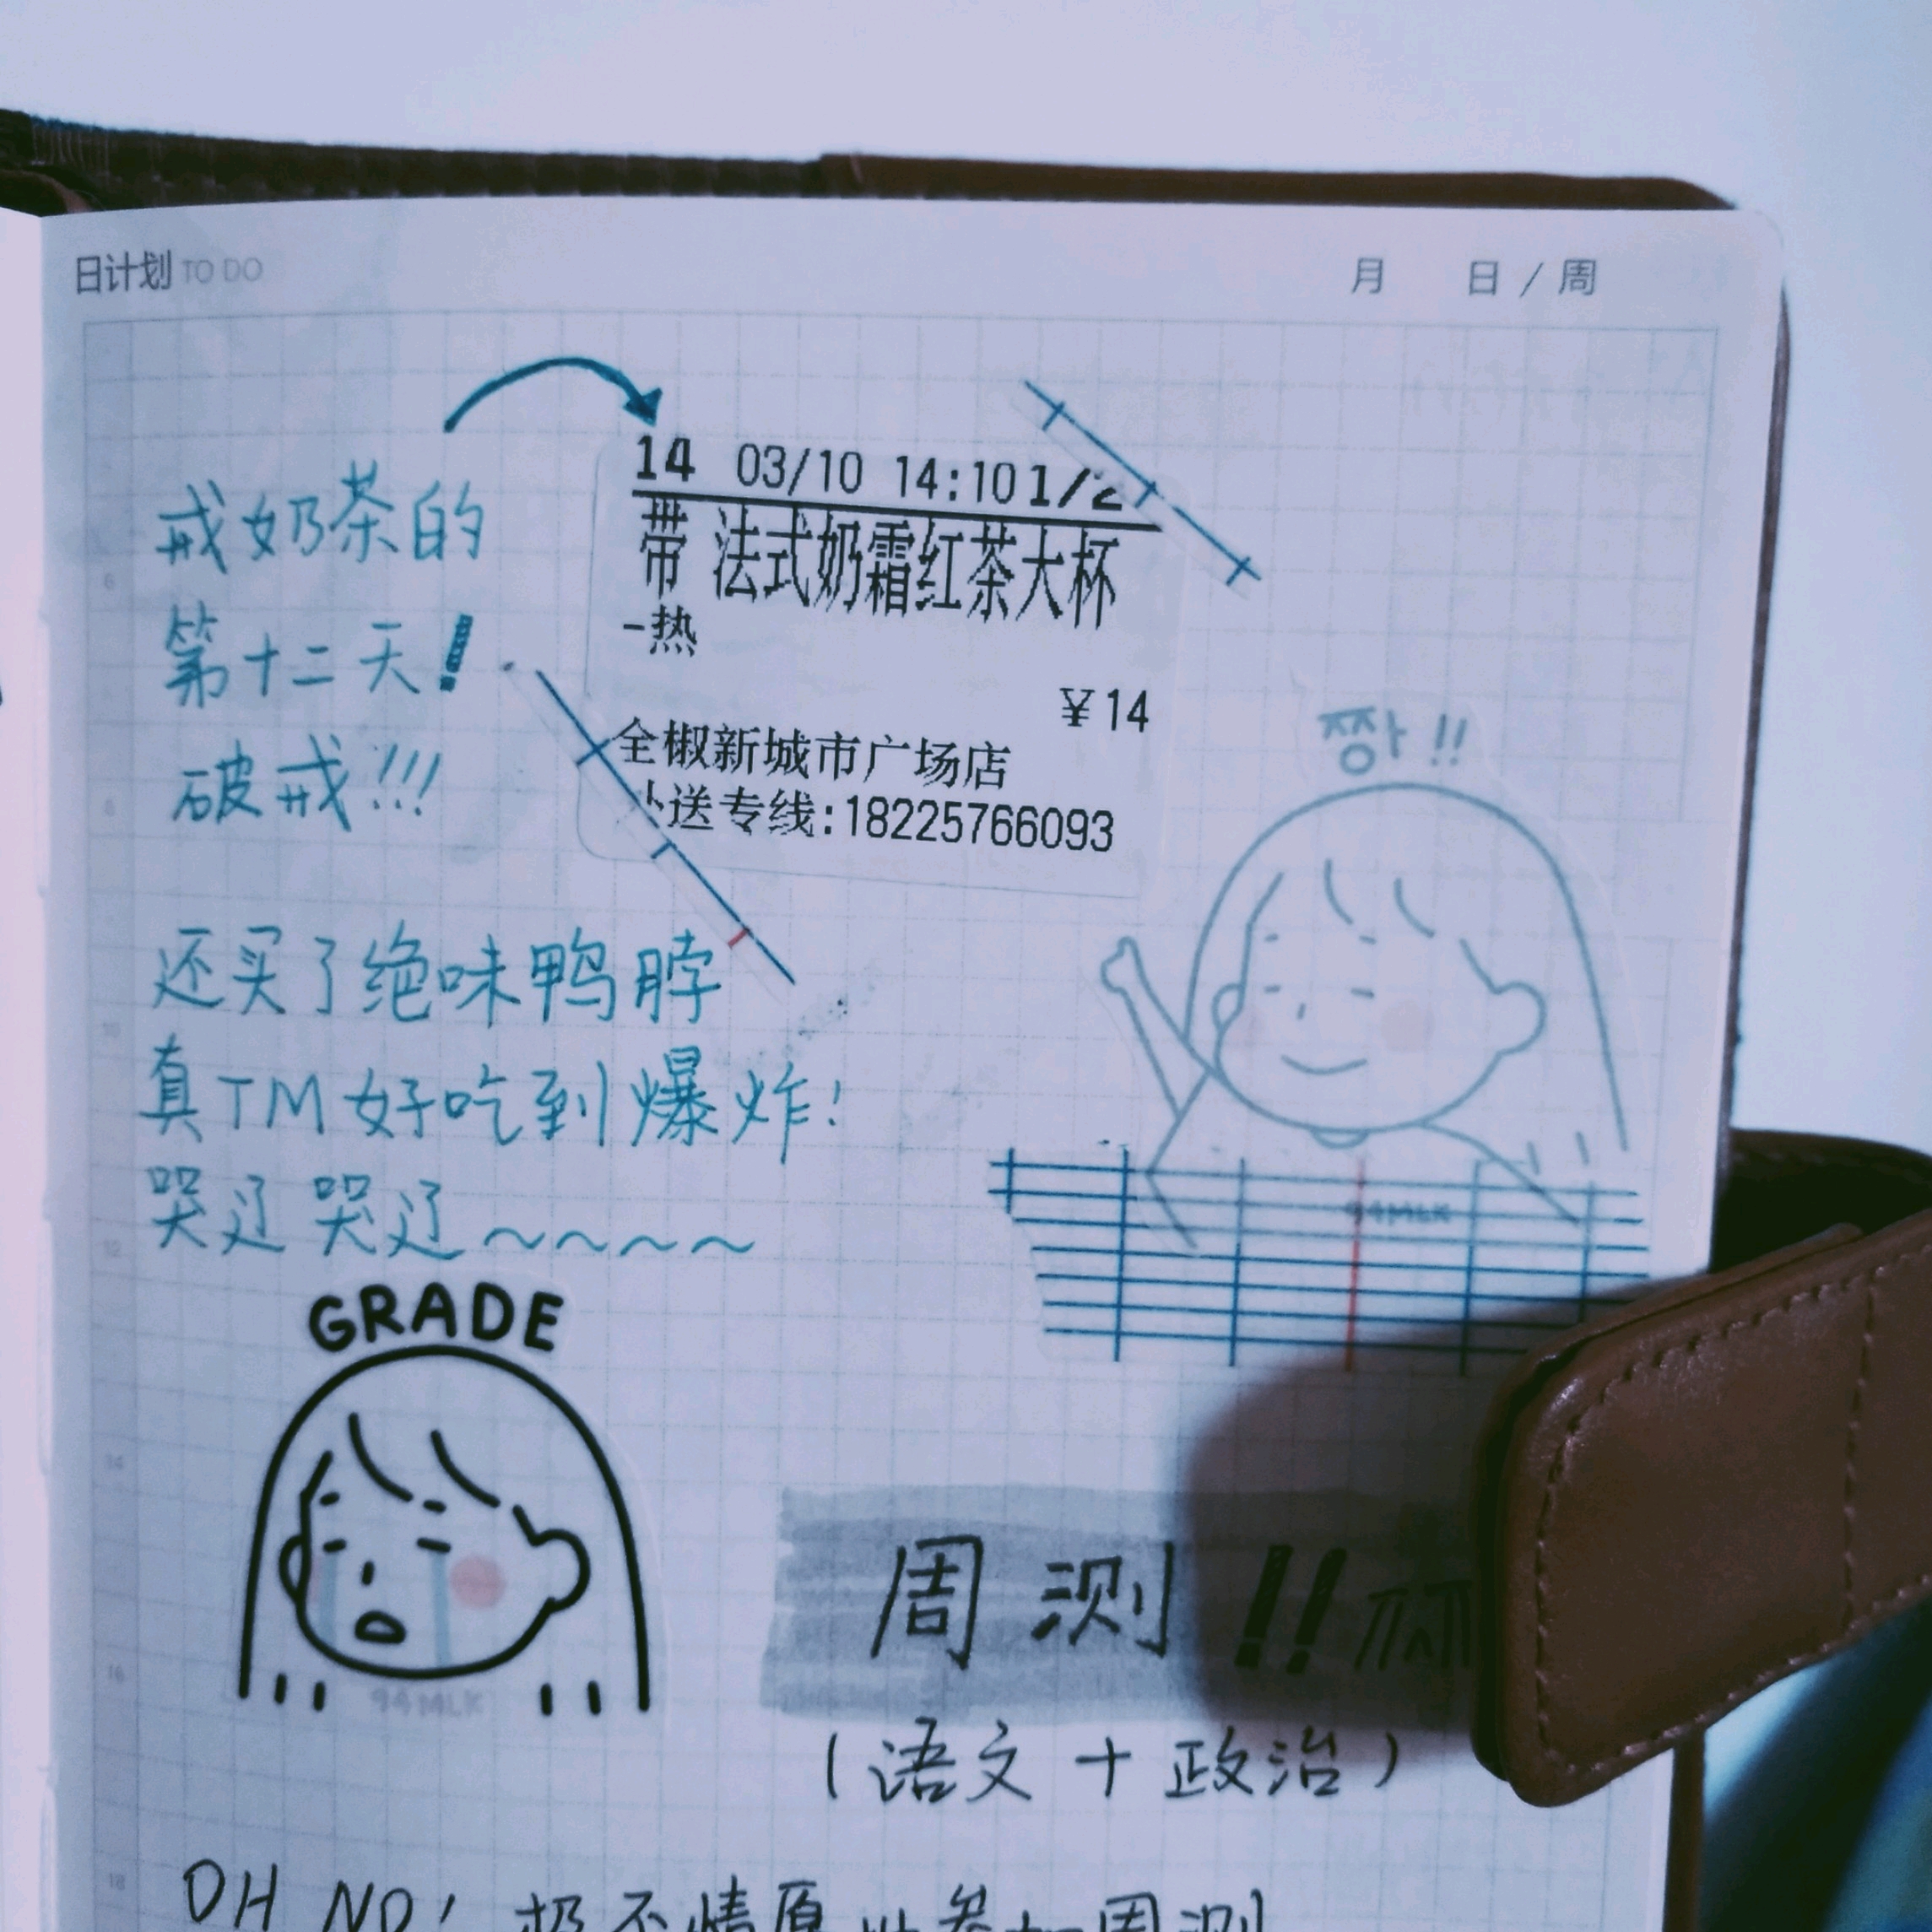 日计划 TO DO 月 日 / 周
14 03/10 14:10 1/2
带 法式奶霜红茶大杯
-热
¥14
全椒新城市广场店
送专线:18225766093
戒奶茶的
第十二天!
破戒!!!
짱!!
还买了绝味鸭脖
真TM好吃到爆炸!
哭辽哭辽~~~~
94MLK
GRADE
94MLK
周测!!
(语文+政治)
OH NO! 极不情愿 参加周测
6
8
10
12
14
16
18